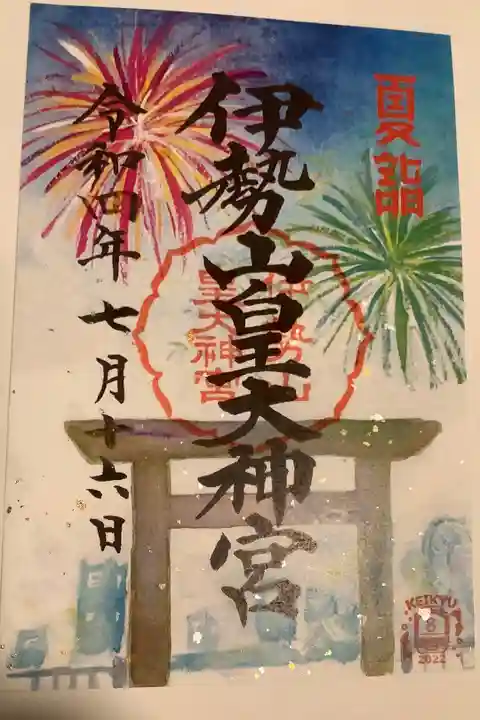 夏詣
伊勢山皇大神宮
伊勢山
皇大神宮
令和四年七月十六日
KEIKYU
2022